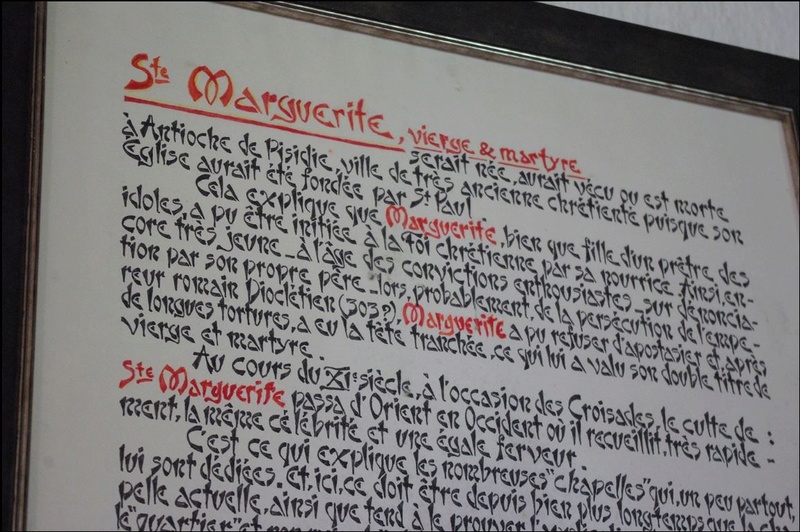 Ste Marguerite, vierge & martyre
serait née, aurait vécu ou est morte
à Antioche de Pisidie, ville de très ancienne chrétienté puisque son
Église aurait été fondée par St Paul
Cela explique que Marguerite, bien que fille d'un prêtre des
idoles, a pu être initiée à la foi chrétienne par sa nourrice. Ainsi, en-
core très jeune _ à l'âge des convictions enthousiastes _ sur dénoncia-
tion par son propre père _ lors, probablement, de la persécution de l'empe-
reur romain Dioclétien (303?), Marguerite a pu refuser d'apostasier et après
de longues tortures, a eu la tête tranchée, ce qui lui a valu son double titre de
vierge et martyre.
Au cours du XIe siècle, à l'occasion des Croisades, le culte de
Ste Marguerite passa d'Orient en Occident où il recueillit, très rapide-
ment, la même célébrité et une égale ferveur.
C'est ce qui explique les nombreuses "chapelles" qui, un peu partout,
lui sont dédiées. Et, ici, ce doit être depuis bien plus longtemps
pelle actuelle, ainsi que tend à le prouver
le "quartier" et